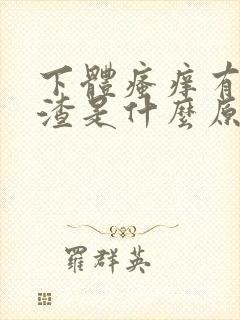 下體瘙癢有
渣是什麼原
羅群英